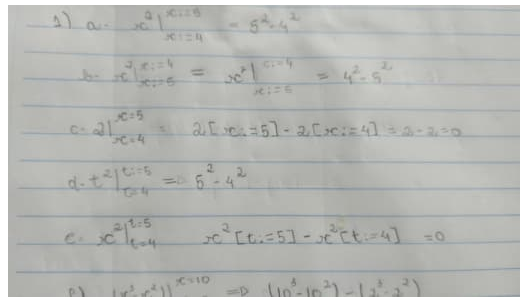 1) a- x²|x:=5 x:=4 = 5²-4²
b- x²|x:=4 x:=5 = x²|x:=4 x:=5 = 4²-5²
c- 2|x=5 x=4 = 2[x:=5]-2[x:=4] = 2-2=0
d- t²|t:=5 t=4 => 5²-4²
e- x²|t=5 t=4 x²[t:=5]-x²[t:=4] =0
(x³-x²)|x=10 => (10³-10²)-(2³-2²)